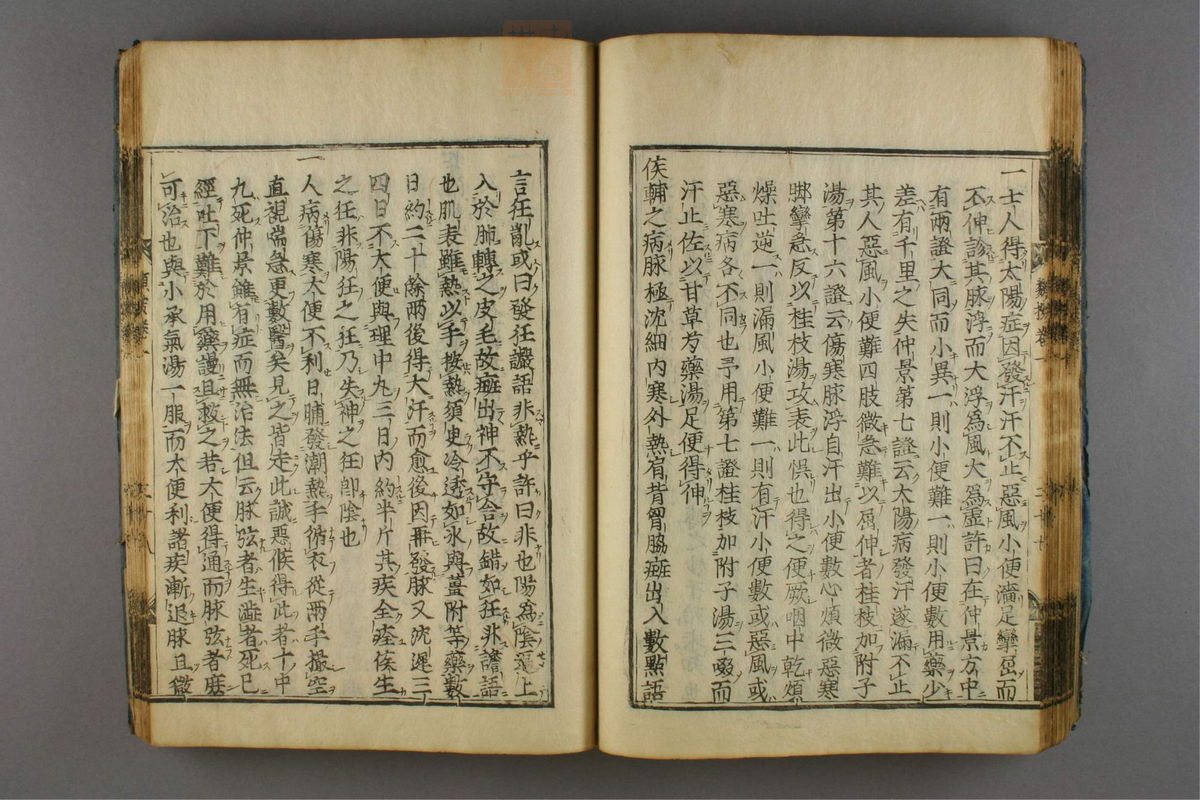 一士人得太陽症因發汗汗不止惡風小便澁足攣屈而
不伸診其脉浮而大浮為風大為虛許曰在仲景方中
有兩證大同而小異一則小便難一則小便數用藥少
差有千里之失仲景第七證云太陽病發汗遂漏不止
其人惡風小便難四肢微急難以屈伸者桂枝加附子
湯第十六證云傷寒脉浮自汗出小便數心煩微惡寒
脚攣急反以桂枝湯攻表此悞也得之便厥咽中乾煩
燥吐逆一則漏風小便難一則有汗小便數或惡風或
惡寒病各不同也予用第七證桂枝加附子湯三啜而
汗止佐以甘草芍藥湯足便得伸
侯輔之病脉極沈細內寒外熱肩背胷脇癍出入數點語
言狂亂或曰發狂讝語非熱乎許曰非也陽為陰逼上
入於肺轉之皮毛故癍出神不守舍故錯如狂非譫語
也肌表雖熱以手按熱須臾冷透如氷與薑附等藥數
日約二十餘兩後得大汗而愈後因再發脉又沈遲三
四日不大便與理中九三日內約半斤其疾全痊侯生
之狂非陽狂之狂乃失神之狂卽陰也
一
人病傷寒大便不利日晡發潮熱手循衣從兩手撮空
直視喘急更數醫矣見之皆走此誠惡候得此者十中
九死仲景雖有症而無治法但云脉弦者生澁者死已
經吐下難於用藥謾且救之若大便得通而脉弦者庶
可治也與小承氣湯一服而大便利諸疾漸退脉且微